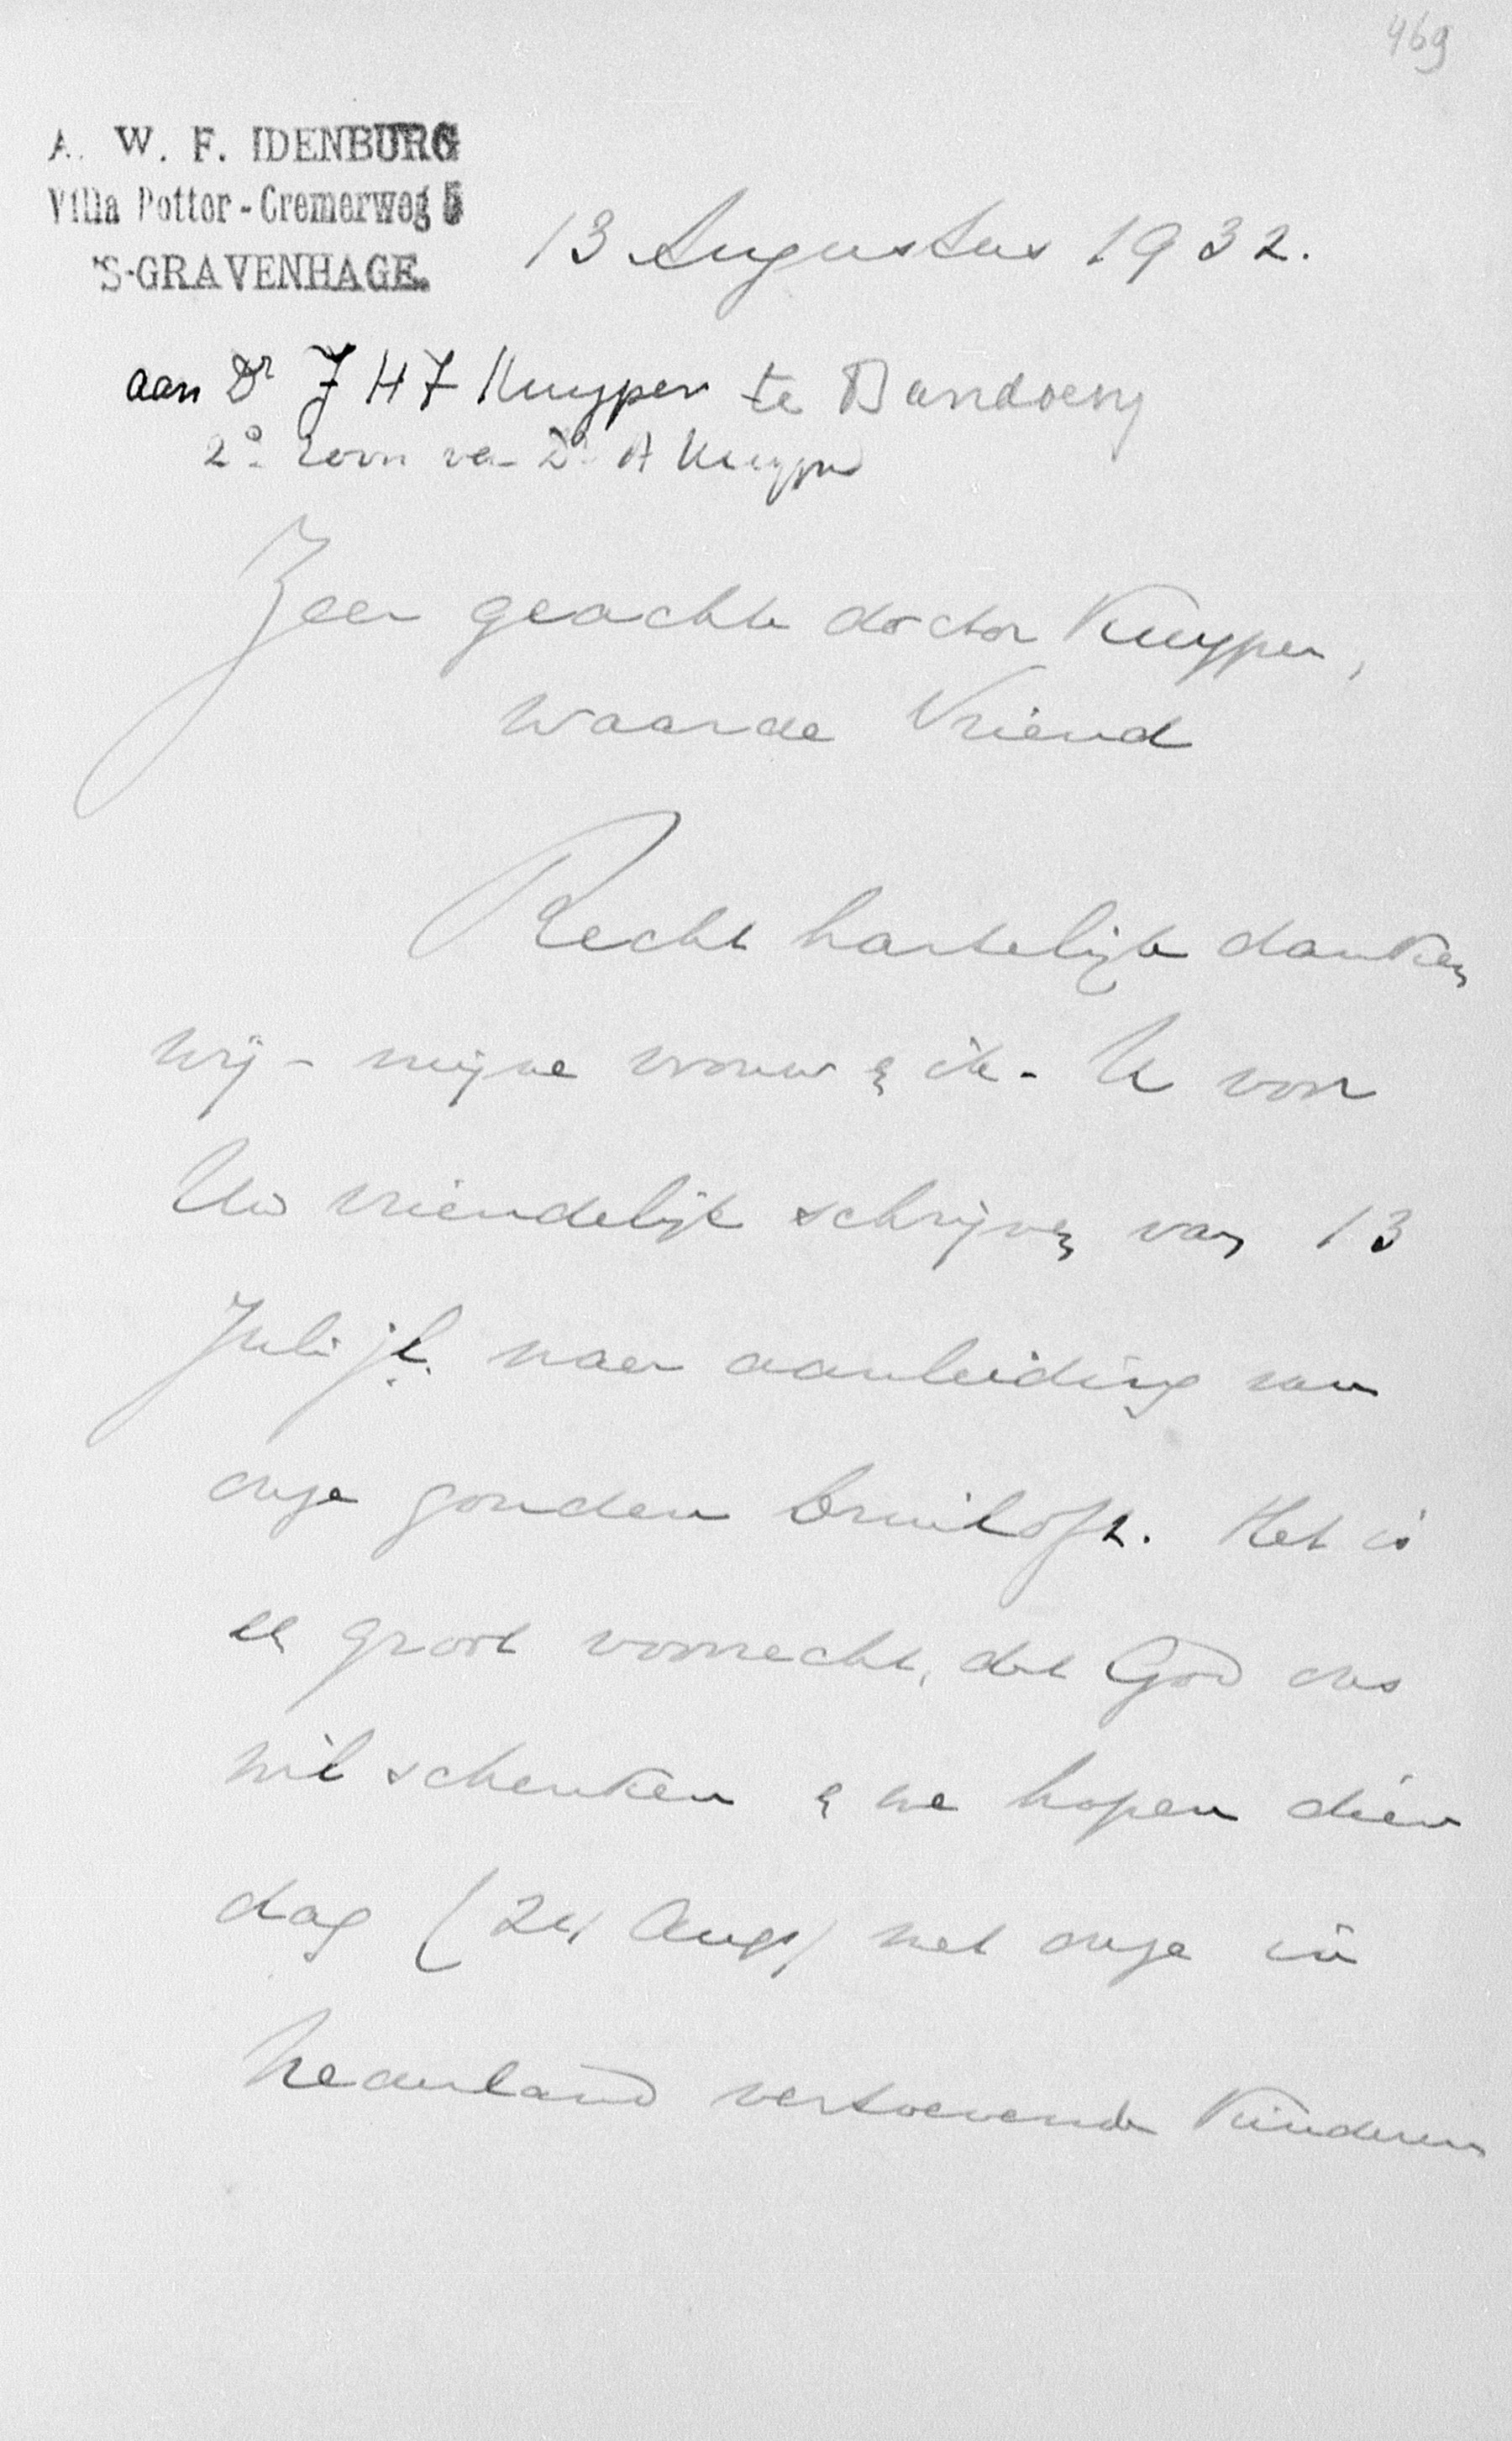 469
A. W. F. IDENBURG
Villa Pottor - Cremerweg 5
'S-GRAVENHAGE.
13 Augustus 1932.
aan Dr J H J Kuyper te Bandoeng
2e zoon van Dr A Kuyper
Zeer geachte doctor Kuyper,
Waarde Vriend
Recht hartelijk danken
wij - mijne vrouw & ik - U voor
Uw vriendelijk schrijven van 13
Juli jl. naar aanleiding van
onze gouden bruiloft. Het is
een groot voorrecht, dat God ons
wil schenken & we hopen dien
dag (24 Aug) met onze in
Nederland vertoevende kinderen